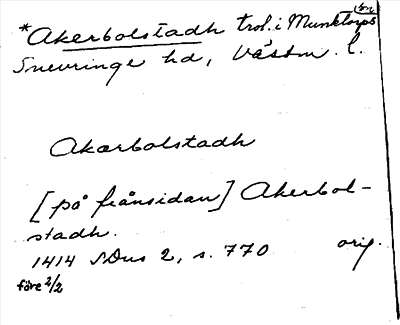 *Akerbolstadh trol. i Munktorps sn
Snevringe hd, Västm. l.
Akarbolstadh
[på frånsidan] Akerbol-
stadh.
1414 SDns 2, s. 770 orig.
före 2/2